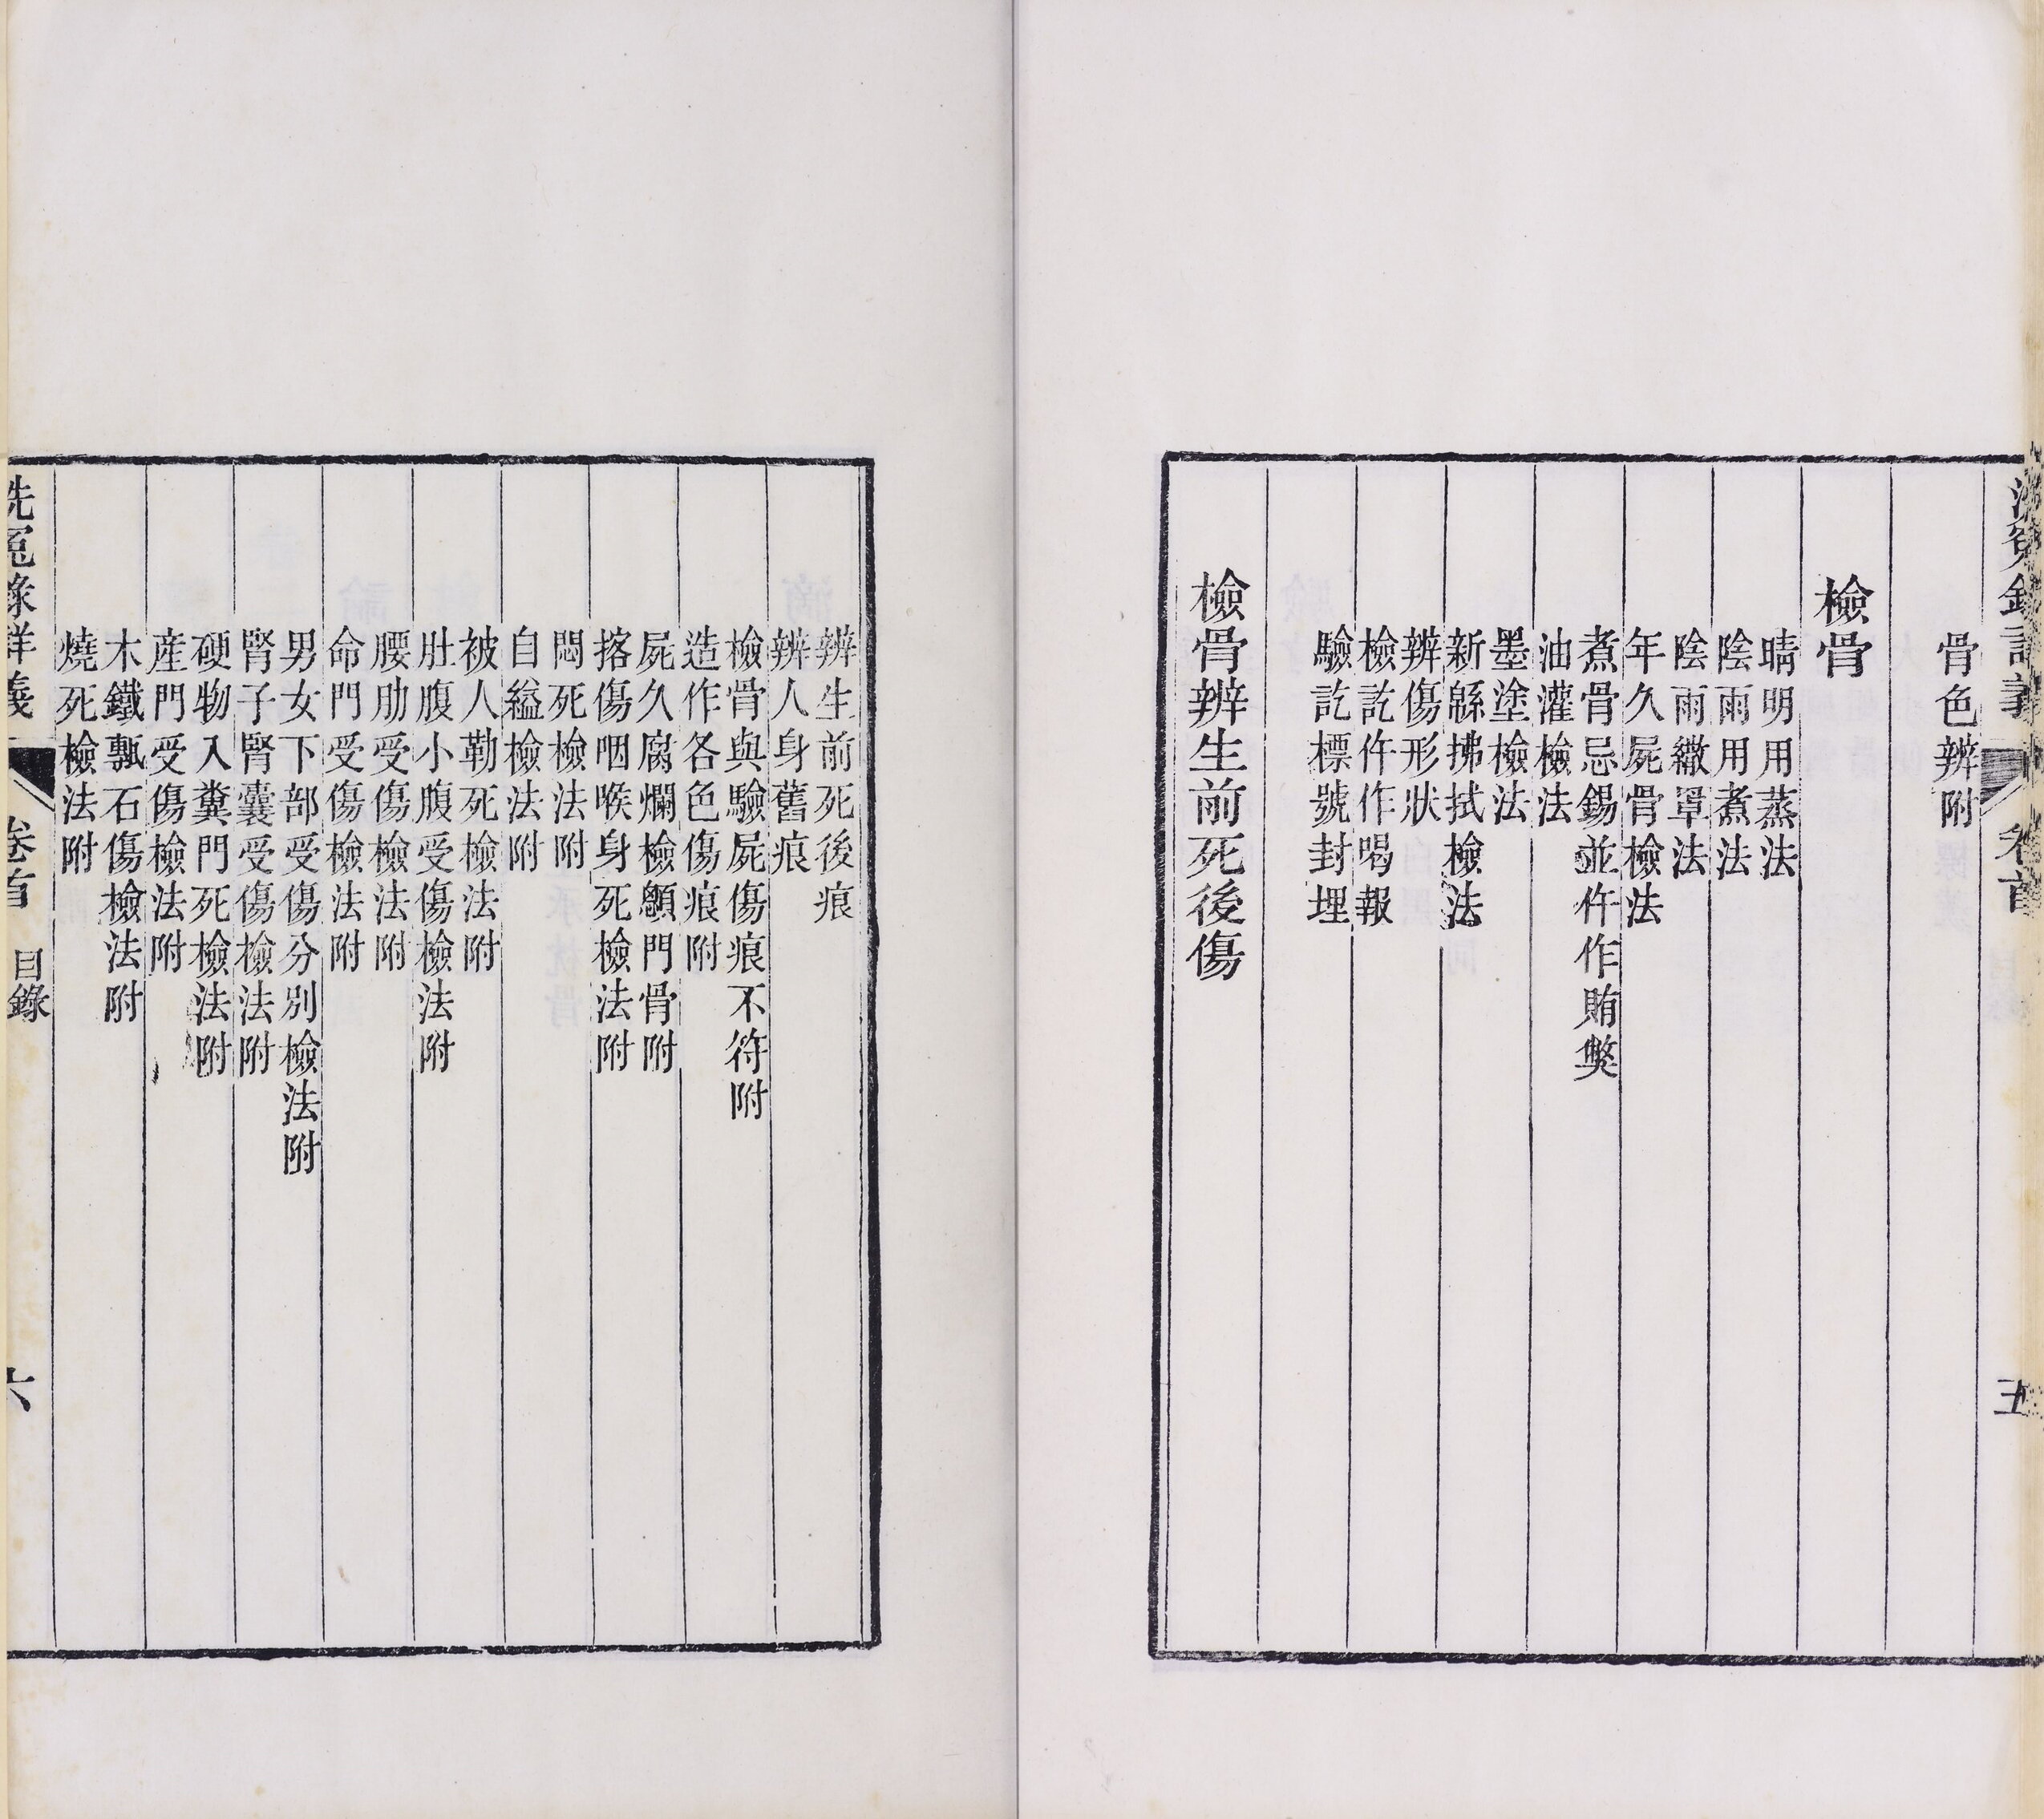 洗冤錄詳義 卷首 五
骨色辨附
檢骨
晴明用蒸法
陰雨用煮法
陰雨繖罩法
年久屍骨檢法
煮骨忌錫並仵作賄獘
油灌檢法
墨塗檢法
新緜拂拭檢法
辨傷形狀
檢訖仵作喝報
驗訖標號封埋
檢骨辨生前死後傷
辨生前死後痕
辨人身舊痕
檢骨與驗屍傷痕不符附
造作各色傷痕附
屍久腐爛檢顖門骨附
搭傷咽喉身死檢法附
悶死檢法附
自縊檢法附
被人勒死檢法附
肚腹小腹受傷檢法附
腰肋受傷檢法附
命門受傷檢法附
男女下部受傷分別檢法附
腎子腎囊受傷檢法附
硬物入糞門死檢法附
産門受傷檢法附
木鐵甎石傷檢法附
燒死檢法附
洗冤錄詳義 卷首 目錄 六